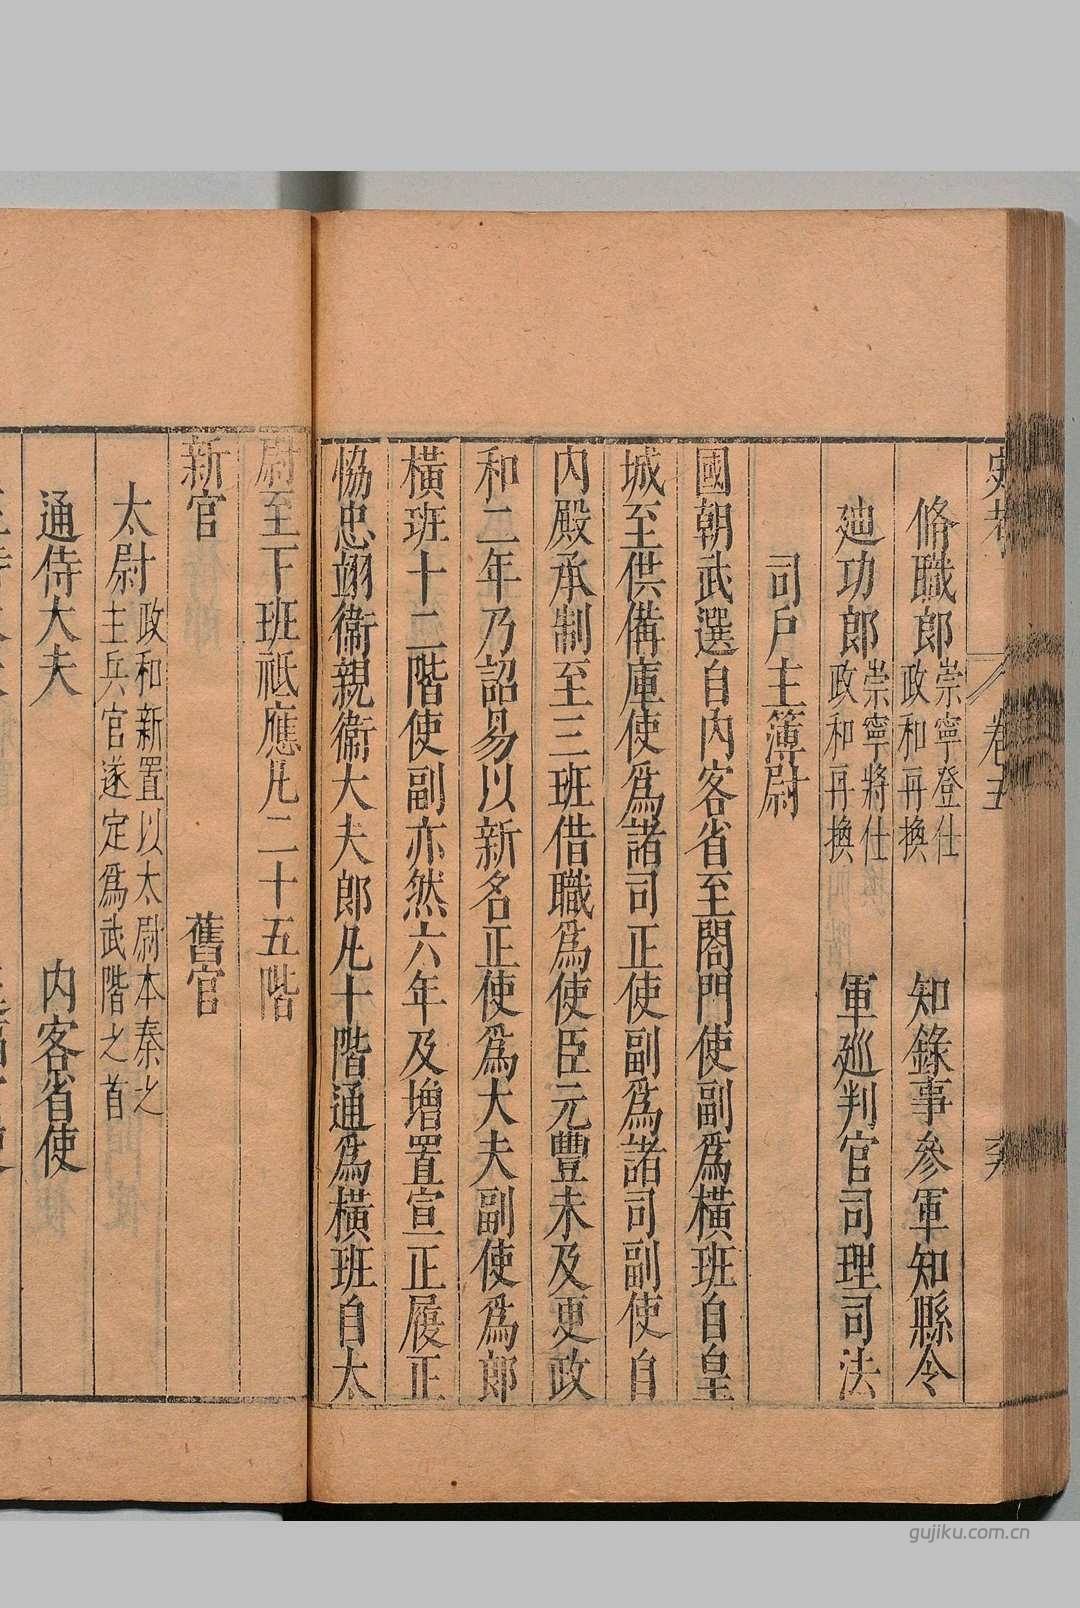 脩職郎崇寧登仕政和再換 知錄事參軍知縣令
廸功郎崇寧將仕政和再換 軍廵判官司理司法
司戶主簿尉
國朝武選自內客省至閤門使副爲橫班自皇
城至供備庫使爲諸司正使副爲諸司副使自
內殿承制至三班借職爲使臣元豐未及更政
和二年乃詔易以新名正使爲大夫副使爲郎
橫班十二階使副亦然六年及增置宣正履正
恊忠翊衞親衞大夫郎凡十階通爲橫班自太
尉至下班祗應凡二十五階
新官 舊官
太尉政和新置以太尉本秦之主兵官遂定爲武階之首
通侍大夫 內客省使
gujiku.com.cn